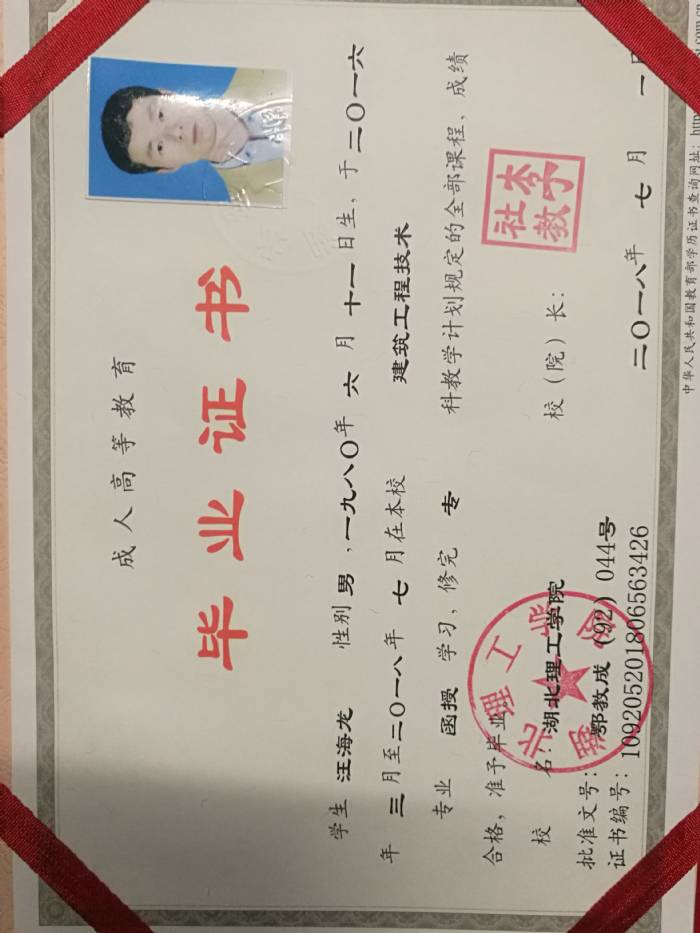 成人高等教育
毕业证书
学生 汪海龙 性别 男 ，一九八〇年 六 月 十一 日生，于 二〇一六
年 三 月至二〇一八年 七 月在本校 建筑工程技术
专业 函授 学习，修完 专 科教学计划规定的全部课程，成绩
合格，准予毕业
校 名：湖北理工学院 校（院）长：
李社教
批准文号：鄂教成（92）044号
证书编号：109205201806563426
二〇一八年 七 月 一日
中华人民共和国教育部学历证书查询网址：